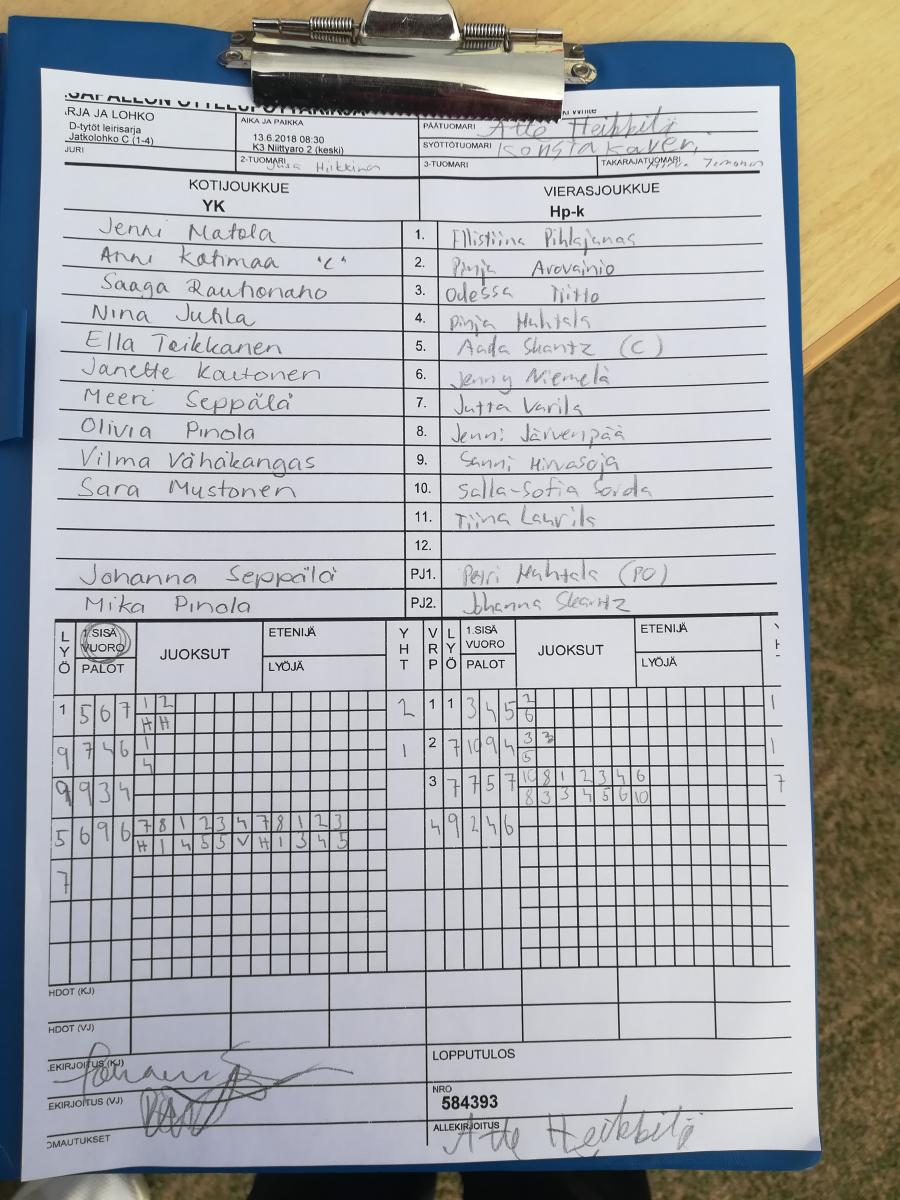 ARJA JA LOHKO
D-tytöt leirisarja
Jatkolohko C (1-4)
AIKA JA PAIKKA
13.6.2018 08:30
K3 Niittyaro 2 (keski)
PÄÄTUOMARI Atte Heikkilä
SYÖTTÖTUOMARI
JURI
2-TUOMARI
3-TUOMARI
TAKARAJATUOMARI
KOTIJOUKKUE VIERASJOUKKUE
YK Hp-k
Jenni Matola 1. Ellistiina Pihlajamas
Anni Katimaa "C" 2. Pinja Arovainio
Saaga Rautionaho 3. Odessa Tiitto
Nina Jutila 4. Pinja Huhtala
Ella Teikkanen 5. Aada Skantz (C)
Janette Kautonen 6. Jenny Niemelä
Meeri Seppälä 7. Jutta Varila
Olivia Pinola 8. Jenni Järvenpää
Vilma Vähäkangas 9. Sanni Hirvasoja
Sara Mustonen 10. Salla-Sofia Sorda
11. Tiina Laurila
12.
Johanna Seppälä PJ1. Petri Huhtala (PO)
Mika Pinola PJ2. Johanna Skantz
LYÖ 1.SISÄ VUORO PALOT JUOKSUT ETENIJÄ LYÖJÄ YHT VRP LYÖ 1.SISÄ VUORO PALOT JUOKSUT ETENIJÄ LYÖJÄ
1 5 6 7 1 2 2 1 1 3 4 5 2 1
H H 6
9 7 4 6 1 1 2 7 10 9 4 3 3 1
4 5
9 9 3 4 3 7 7 5 7 10 8 1 2 3 4 6 7
8 3 3 4 5 6 10
5 6 9 6 7 8 1 2 3 4 7 8 1 2 3 4 9 2 4 6
H 1 4 5 5 V H 1 3 4 5
7
HDOT (KJ)
HDOT (VJ)
EKIRJOITUS (KJ)
LOPPUTULOS
EKIRJOITUS (VJ)
NRO
584393
OMAUTUKSET
ALLEKIRJOITUS Atte Heikkilä